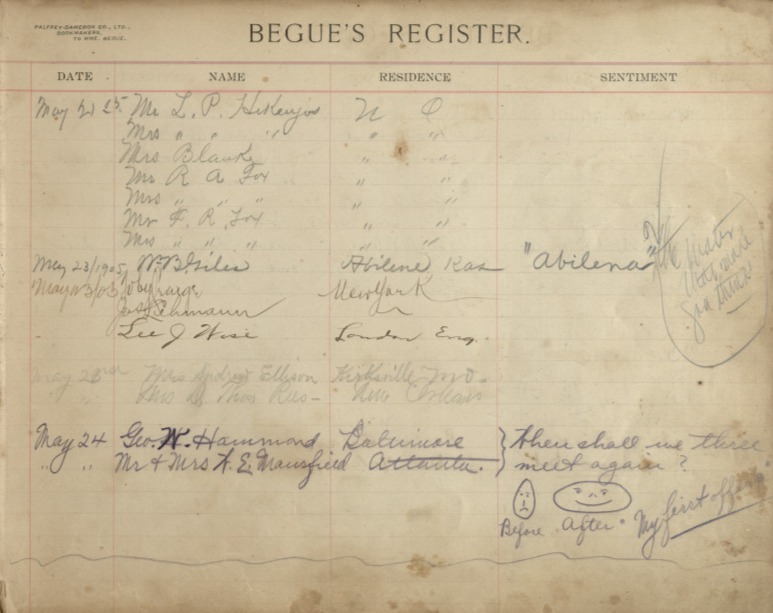 PALFREY-DAMERON CO., LTD.,
BOOKMAKERS,
TO MME. BEGUE.
BEGUE'S REGISTER.
DATE NAME RESIDENCE SENTIMENT
May 21 25 Mr L. P. N O
Mrs " " " " "
Mrs "
Mr R A Fox " "
Mrs " " " " "
Mr F. R. Fox " "
Mrs " " " " "
May 23/1905 W. B. Giles Abilene, Kas "Abilena" The water that make you think
May 23/05 New York
Lehmann
Lee J Wise London Eng.
May 23rd Mrs Andrew Ellison Kirksville Mo-
" " New Orleans
May 24 Geo. W. Hammond Baltimore } When shall we three
" " Mr & Mrs A. E. Mansfield Atlanta. } meet again?
Before After My first